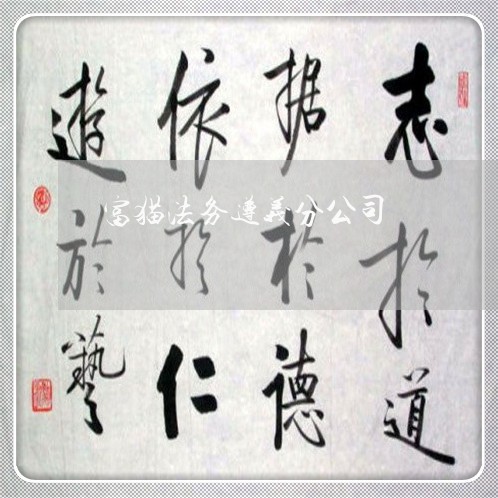 志於道
据於德
依於仁
遊於藝
富猫法务遵義分公司